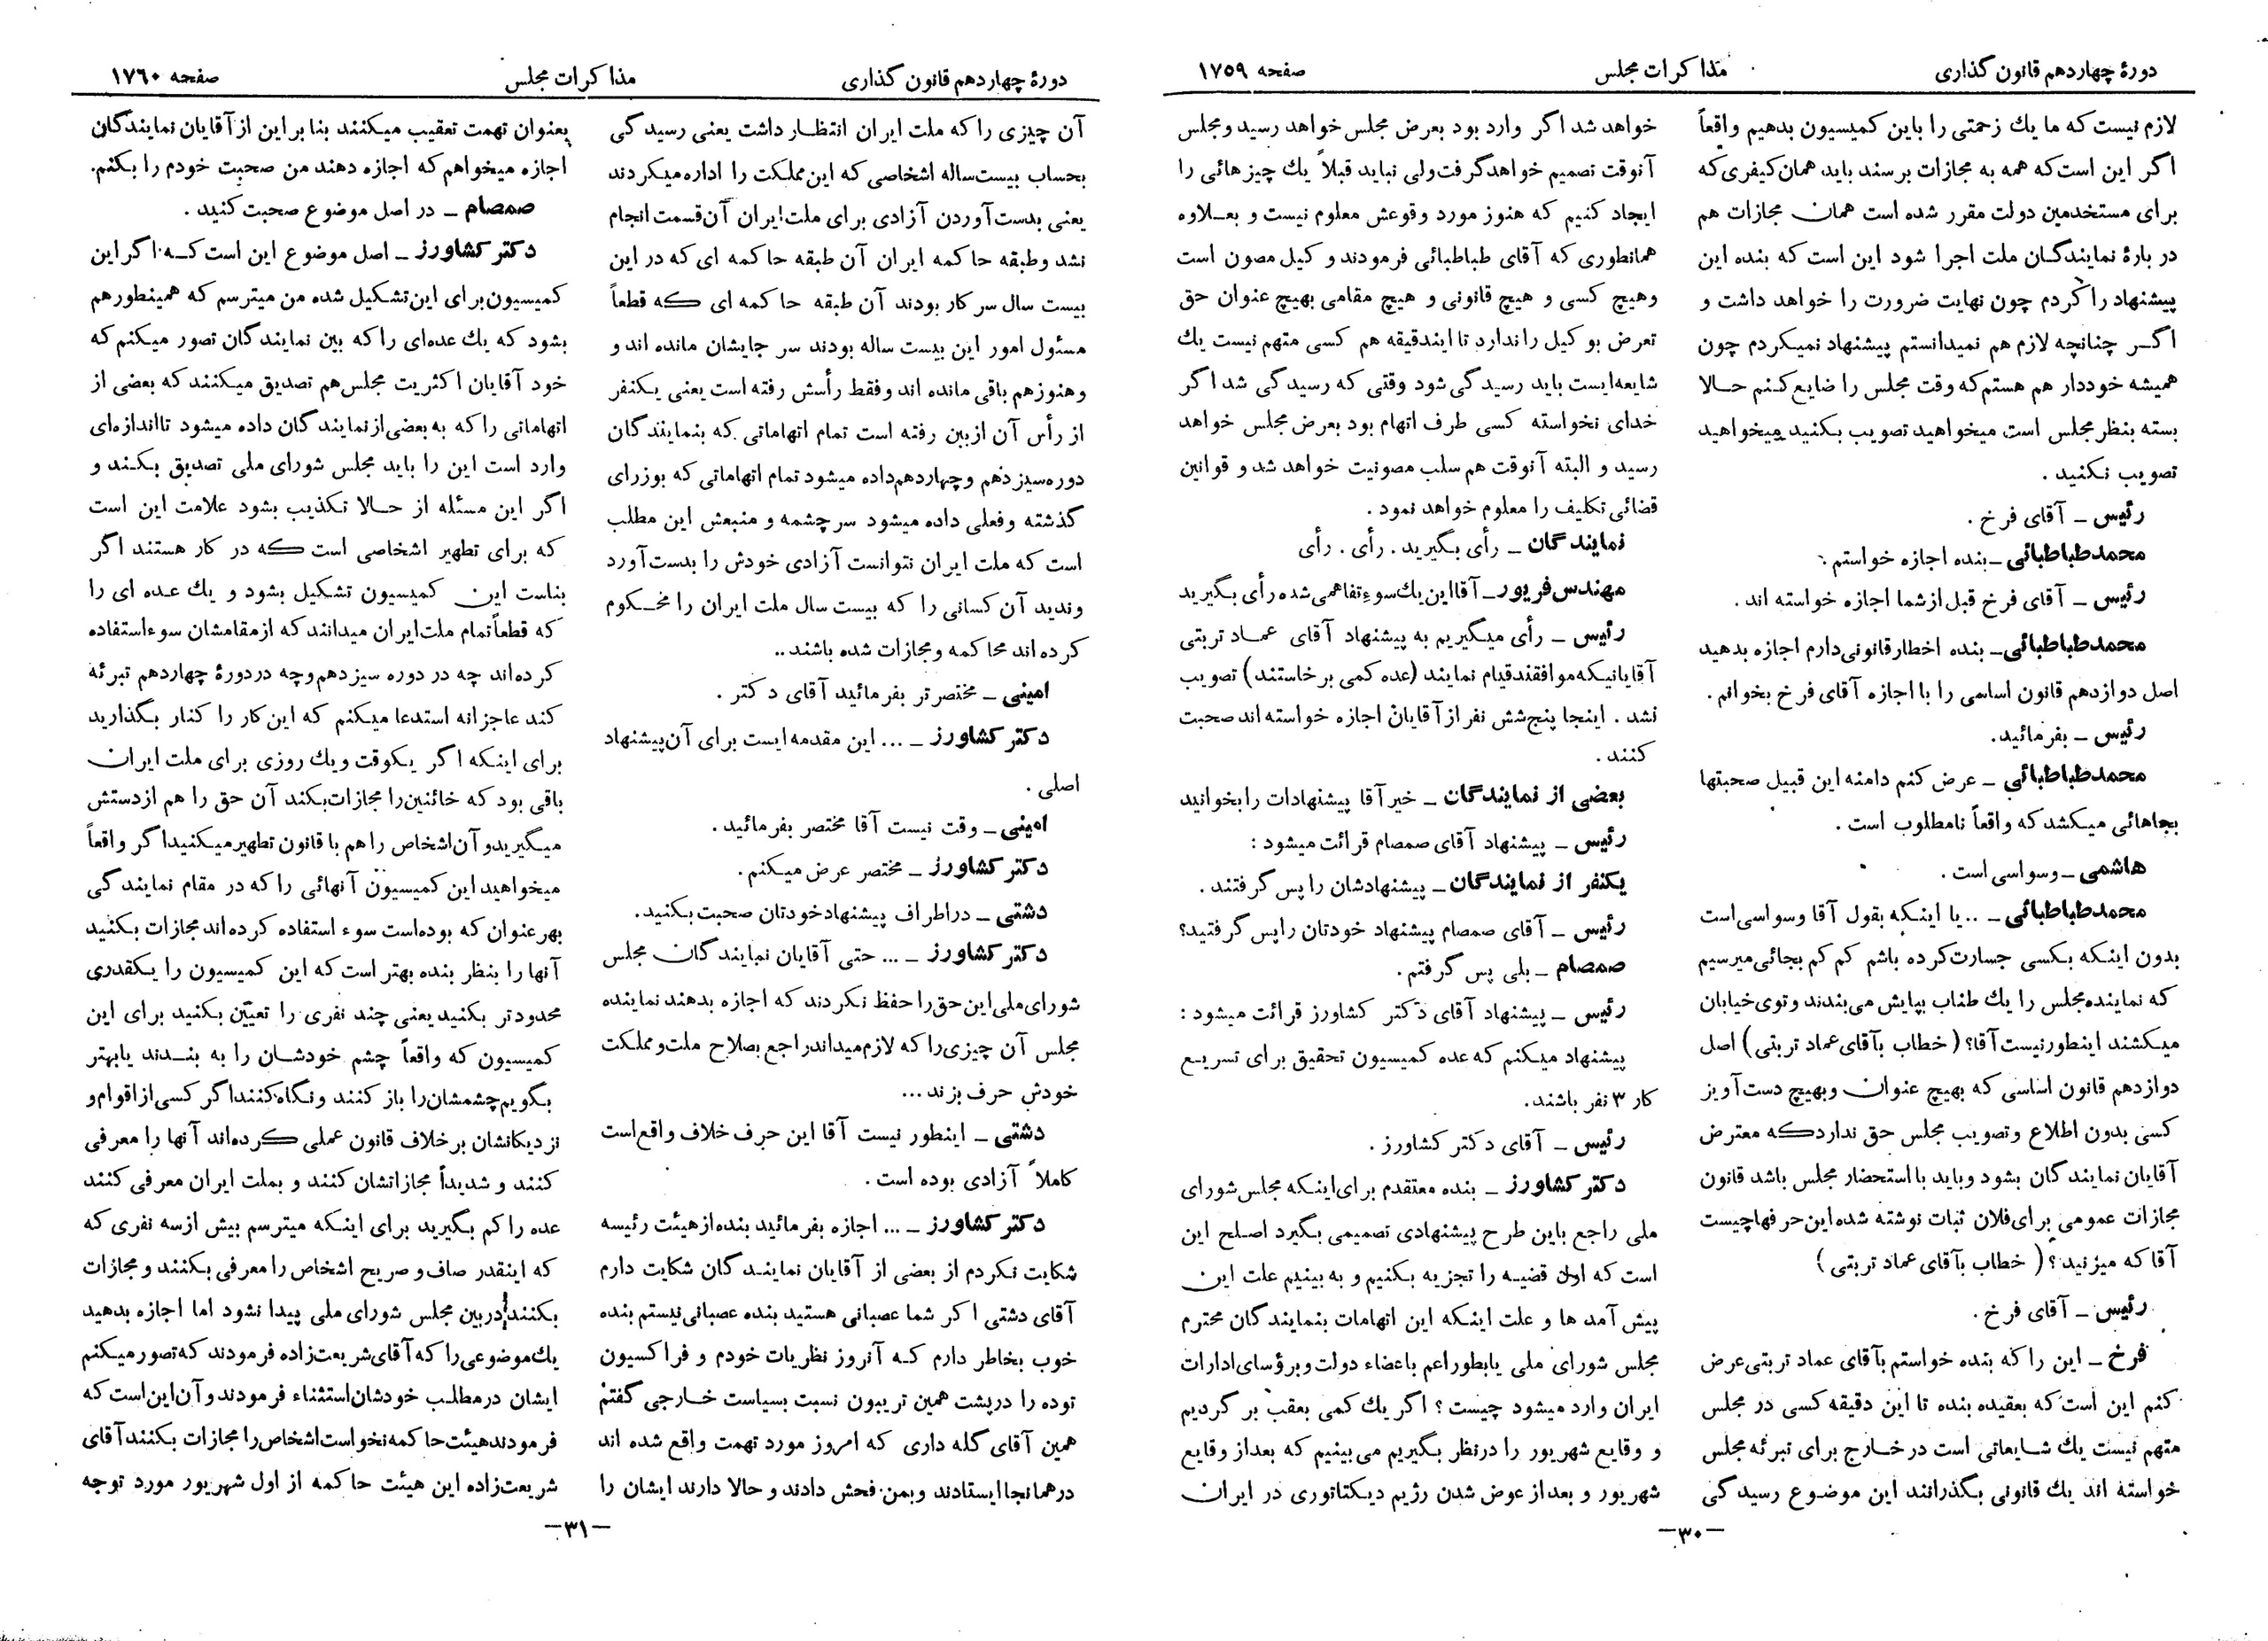 دورهٔ چهاردهم قانون گذاری
مذاکرات مجلس
صفحه ۱۷۵۹
لازم نیست که ما یك زحمتی را باین کمیسیون بدهیم واقعاً
اگر این است که همه به مجازات برسند باید همان کیفری که
برای مستخدمین دولت مقرر شده است همان مجازات هم
در بارهٔ نمایندگان ملت اجرا شود این است که بنده این
پیشنهاد را کردم چون نهایت ضرورت را خواهد داشت و
اگر چنانچه لازم هم نمیدانستم پیشنهاد نمیکردم چون
همیشه خوددار هم هستم که وقت مجلس را ضایع کنم حالا
بسته بنظر مجلس است میخواهید تصویب بکنید میخواهید
تصویب نکنید .
رئیس – آقای فرخ .
محمدطباطبائی – بنده اجازه خواستم .
رئیس – آقای فرخ قبل از شما اجازه خواسته اند .
محمدطباطبائی – بنده اخطار قانونی دارم اجازه بدهید
اصل دوازدهم قانون اساسی را با اجازه آقای فرخ بخوانم .
رئیس – بفرمائید.
محمدطباطبائی – عرض کنم دامنه این قبیل صحبتها
بجاهائی میکشد که واقعاً نامطلوب است .
هاشمی – وسواسی است .
محمدطباطبائی – .. یا اینکه بقول آقا وسواسی است
بدون اینکه بکسی جسارت کرده باشم کم کم بجائی میرسیم
که نماینده مجلس را یك طناب بپایش می‌بندند و توی خیابان
میکشند اینطور نیست آقا؟ ( خطاب بآقای عماد تربتی ) اصل
دوازدهم قانون اساسی که بهیچ عنوان و بهیچ دست آویز
کسی بدون اطلاع و تصویب مجلس حق ندارد که معترض
آقایان نمایندگان بشود و باید با استحضار مجلس باشد قانون
مجازات عمومی برای فلان ثبات نوشته شده این حرفها چیست
آقا که میزنید ؟ ( خطاب بآقای عماد تربتی )
رئیس – آقای فرخ .
فرخ – این را که بنده خواستم بآقای عماد تربتی عرض
کنم این است که بعقیده بنده تا این دقیقه کسی در مجلس
متهم نیست یك شایعاتی است در خارج برای تبرئه مجلس
خواسته اند یك قانونی بگذرانند این موضوع رسیدگی
خواهد شد اگر وارد بود بعرض مجلس خواهد رسید و مجلس
آنوقت تصمیم خواهد گرفت ولی نباید قبلاً یك چیزهائی را
ایجاد کنیم که هنوز مورد وقوعش معلوم نیست و بعلاوه
همانطوری که آقای طباطبائی فرمودند وکیل مصون است
وهیچ کسی و هیچ قانونی و هیچ مقامی بهیچ عنوان حق
تعرض بوکیل را ندارد تا ایندقیقه هم کسی متهم نیست یك
شایعه‌ایست باید رسیدگی شود وقتی که رسیدگی شد اگر
خدای نخواسته کسی طرف اتهام بود بعرض مجلس خواهد
رسید و البته آنوقت هم سلب مصونیت خواهد شد و قوانین
قضائی تکلیف را معلوم خواهد نمود .
نمایندگان – رأی بگیرید . رأی . رأی
مهندس فریور – آقا این یك سوء تفاهمی شده رأی بگیرید
رئیس – رأی میگیریم به پیشنهاد آقای عماد تربتی
آقایانیکه موافقند قیام نمایند (عده کمی برخاستند) تصویب
نشد . اینجا پنج شش نفر از آقایان اجازه خواسته اند صحبت
کنند .
بعضی از نمایندگان – خیر آقا پیشنهادات را بخوانید
رئیس – پیشنهاد آقای صمصام قرائت میشود :
یکنفر از نمایندگان – پیشنهادشان را پس گرفتند .
رئیس – آقای صمصام پیشنهاد خودتان را پس گرفتید؟
صمصام – بلی پس گرفتم .
رئیس – پیشنهاد آقای دکتر کشاورز قرائت میشود :
پیشنهاد میکنم که عده کمیسیون تحقیق برای تسریع
کار ۳ نفر باشند.
رئیس – آقای دکتر کشاورز .
دکتر کشاورز – بنده معتقدم برای اینکه مجلس شورای
ملی راجع باین طرح پیشنهادی تصمیمی بگیرد اصلح این
است که اول قضیه را تجزیه بکنیم و به بینیم علت این
پیش آمد ها و علت اینکه این اتهامات بنمایندگان محترم
مجلس شورای ملی یا بطور اعم باعضاء دولت و برؤسای ادارات
ایران وارد میشود چیست ؟ اگر یك کمی بعقب بر گردیم
و وقایع شهریور را در نظر بگیریم می بینیم که بعد از وقایع
شهریور و بعد از عوض شدن رژیم دیکتاتوری در ایران
–۳۰–
دورهٔ چهاردهم قانون گذاری
مذاکرات مجلس
صفحه ۱۷۶۰
آن چیزی را که ملت ایران انتظار داشت یعنی رسیدگی
بحساب بیست ساله اشخاصی که این مملکت را اداره میکردند
یعنی بدست آوردن آزادی برای ملت ایران آن قسمت انجام
نشد و طبقه حاکمه ایران آن طبقه حاکمه ای که در این
بیست سال سر کار بودند آن طبقه حاکمه ای که قطعاً
مسئول امور این بیست ساله بودند سر جایشان مانده اند و
و هنوز هم باقی مانده اند و فقط رأسش رفته است یعنی یکنفر
از رأس آن از بین رفته است تمام اتهاماتی که بنمایندگان
دوره سیزدهم و چهاردهم داده میشود تمام اتهاماتی که بوزرای
گذشته و فعلی داده میشود سرچشمه و منبعش این مطلب
است که ملت ایران نتوانست آزادی خودش را بدست آورد
و ندید آن کسانی را که بیست سال ملت ایران را محکوم
کرده اند محاکمه و مجازات شده باشند ..
امینی – مختصرتر بفرمائید آقای دکتر .
دکتر کشاورز – ... این مقدمه ایست برای آن پیشنهاد
اصلی .
امینی – وقت نیست آقا مختصر بفرمائید .
دکتر کشاورز – مختصر عرض میکنم .
دشتی – در اطراف پیشنهاد خودتان صحبت بکنید .
دکتر کشاورز – ... حتی آقایان نمایندگان مجلس
شورای ملی این حق را حفظ نکردند که اجازه بدهند نماینده
مجلس آن چیزی را که لازم میداند راجع بصلاح ملت و مملکت
خودش حرف بزند ...
دشتی – اینطور نیست آقا این حرف خلاف واقع است
کاملاً آزادی بوده است .
دکتر کشاورز – ... اجازه بفرمائید بنده از هیئت رئیسه
شکایت نکردم از بعضی از آقایان نمایندگان شکایت دارم
آقای دشتی اگر شما عصبانی هستید بنده عصبانی نیستم بنده
خوب بخاطر دارم که آنروز نظریات خودم و فراکسیون
توده را در پشت همین تریبون نسبت بسیاست خارجی گفتم
همین آقای گله داری که امروز مورد تهمت واقع شده اند
در همانجا ایستادند و بمن فحش دادند و حالا دارند ایشان را
بعنوان تهمت تعقیب میکنند بنا بر این از آقایان نمایندگان
اجازه میخواهم که اجازه دهند من صحبت خودم را بکنم.
صمصام – در اصل موضوع صحبت کنید .
دکتر کشاورز – اصل موضوع این است که اگر این
کمیسیون برای این تشکیل شده من میترسم که همینطور هم
بشود که یك عده‌ای را که بین نمایندگان تصور میکنم که
خود آقایان اکثریت مجلس هم تصدیق میکنند که بعضی از
اتهاماتی را که به بعضی از نمایندگان داده میشود تا اندازه‌ای
وارد است این را باید مجلس شورای ملی تصدیق بکند و
اگر این مسئله از حالا تکذیب بشود علامت این است
که برای تطهیر اشخاصی است که در کار هستند اگر
بناست این کمیسیون تشکیل بشود و یك عده ای را
که قطعاً تمام ملت ایران میدانند که از مقامشان سوء استفاده
کرده‌اند چه در دوره سیزدهم و چه در دورهٔ چهاردهم تبرئه
کند عاجزانه استدعا میکنم که این کار را کنار بگذارید
برای اینکه اگر یکوقت و یك روزی برای ملت ایران
باقی بود که خائنین را مجازات بکند آن حق را هم از دستش
میگیرید و آن اشخاص را هم با قانون تطهیر میکنید اگر واقعاً
میخواهید این کمیسیون آنهائی را که در مقام نمایندگی
بهر عنوان که بوده است سوء استفاده کرده اند مجازات بکنید
آنها را بنظر بنده بهتر است که این کمیسیون را یکقدری
محدودتر بکنید یعنی چند نفری را تعیین بکنید برای این
کمیسیون که واقعاً چشم خودشان را به بندند یا بهتر
بگویم چشمشان را باز کنند و نگاه کنند اگر کسی از اقوام و
نزدیکانشان بر خلاف قانون عملی کرده‌اند آنها را معرفی
کنند و شدیداً مجازاتشان کنند و بملت ایران معرفی کنند
عده را کم بگیرید برای اینکه میترسم بیش از سه نفری که
که اینقدر صاف و صریح اشخاص را معرفی بکنند و مجازات
بکنند در بین مجلس شورای ملی پیدا نشود اما اجازه بدهید
یك موضوعی را که آقای شریعت زاده فرمودند که تصور میکنم
ایشان در مطلب خودشان استثناء فرمودند و آن این است که
فرمودند هیئت حاکمه نخواست اشخاص را مجازات بکنند آقای
شریعت زاده این هیئت حاکمه از اول شهریور مورد توجه
–۳۱–